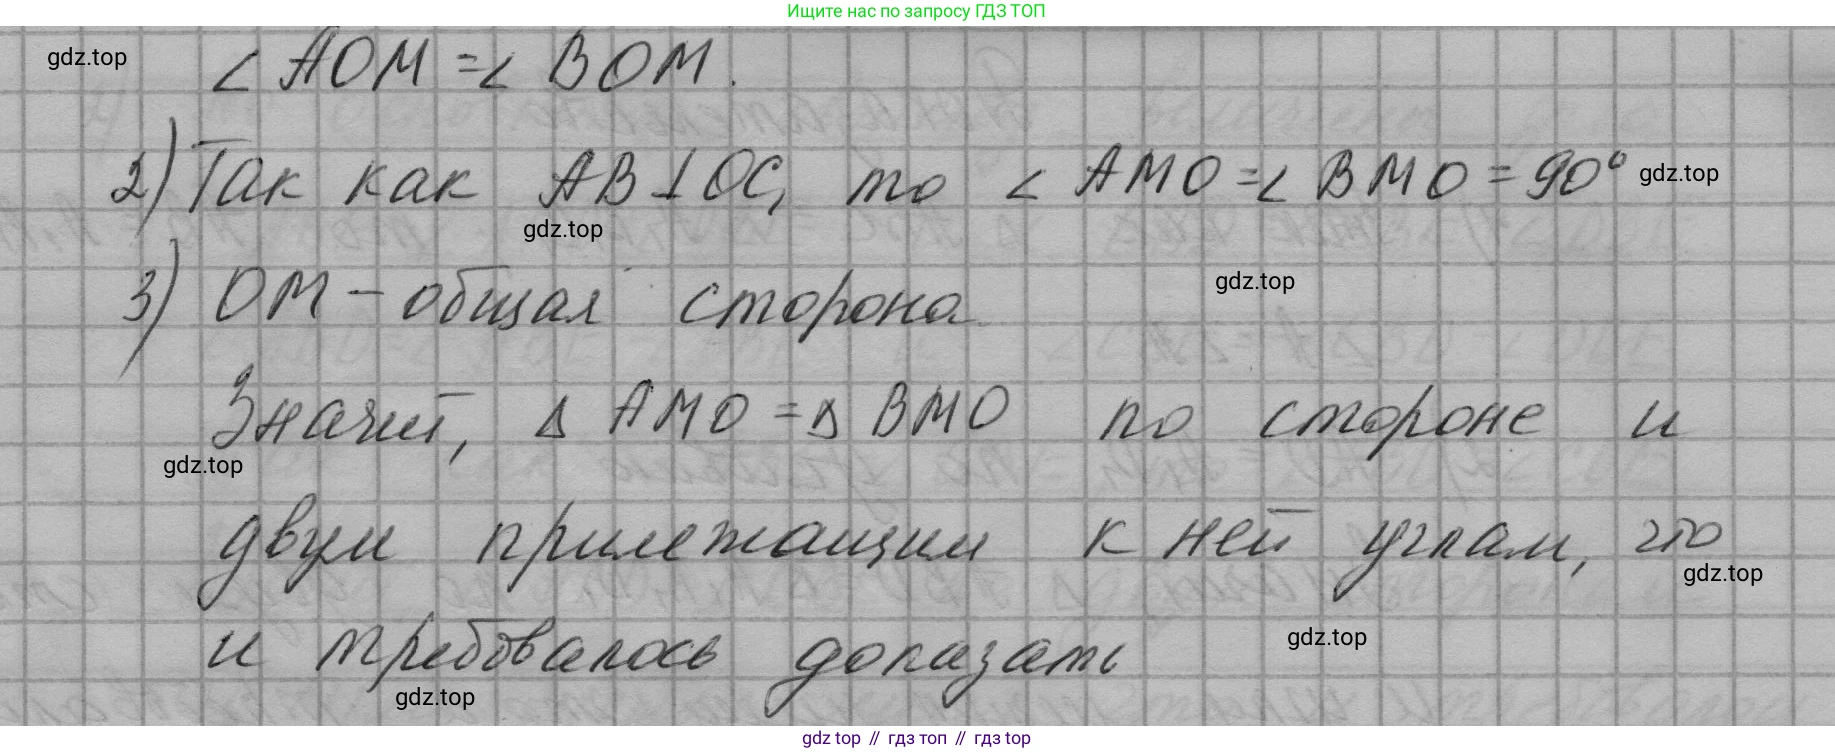 Ищите нас по запросу ГДЗ ТОП
gdz.top
∠ AOM = ∠ BOM.
2) Так как AB ⊥ OC, то ∠ AMO = ∠ BMO = 90°
gdz.top
gdz.top
3) OM – общая сторона
gdz.top
Значит, Δ AMO = Δ BMO по стороне и
gdz.top
двум прилежащим к ней углам, что
gdz.top
и требовалось доказать
gdz.top
gdz.top
gdz top // гдз топ // гдз top